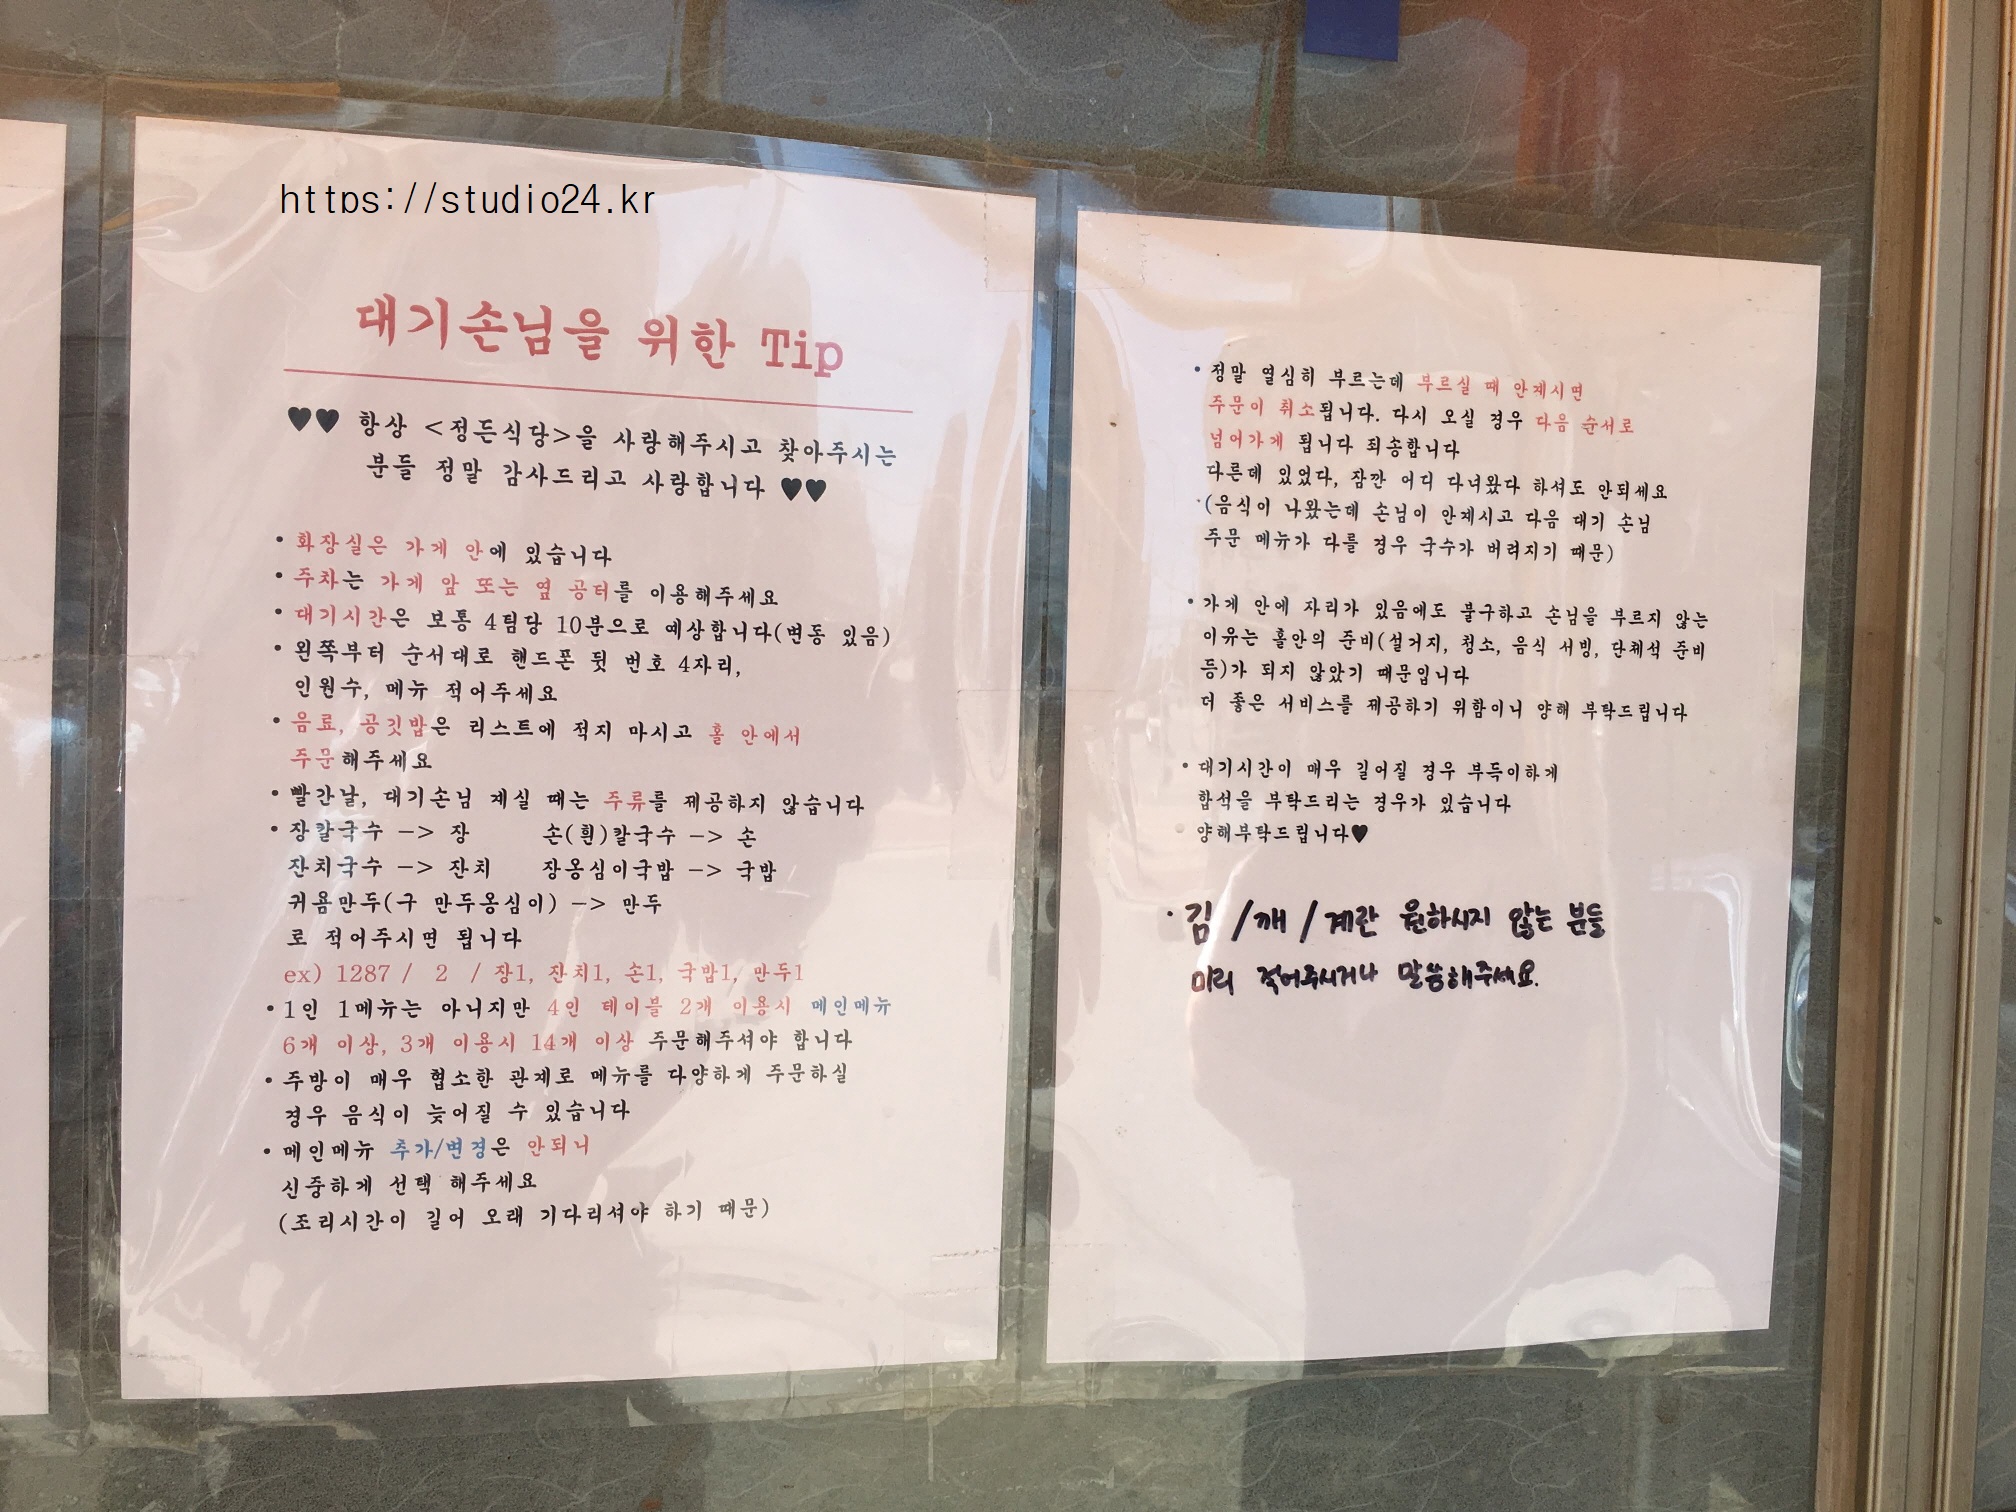 https://studio24.kr
대기손님을 위한 Tip
♥♥ 항상 <정든식당>을 사랑해주시고 찾아주시는
분들 정말 감사드리고 사랑합니다 ♥♥
• 화장실은 가게 안에 있습니다
• 주차는 가게 앞 또는 옆 공터를 이용해주세요
• 대기시간은 보통 4팀당 10분으로 예상합니다(변동 있음)
• 왼쪽부터 순서대로 핸드폰 뒷 번호 4자리,
인원수, 메뉴 적어주세요
• 음료, 공깃밥은 리스트에 적지 마시고 홀 안에서
주문해주세요
• 빨간날, 대기손님 계실 때는 주류를 제공하지 않습니다
• 장칼국수 -> 장 손(흰)칼국수 -> 손
잔치국수 -> 잔치 장옹심이국밥 -> 국밥
귀욤만두(구 만두옹심이) -> 만두
로 적어주시면 됩니다
ex) 1287 / 2 / 장1, 잔치1, 손1, 국밥1, 만두1
• 1인 1메뉴는 아니지만 4인 테이블 2개 이용시 메인메뉴
6개 이상, 3개 이용시 14개 이상 주문해주셔야 합니다
• 주방이 매우 협소한 관계로 메뉴를 다양하게 주문하실
경우 음식이 늦어질 수 있습니다
• 메인메뉴 추가/변경은 안되니
신중하게 선택 해주세요
(조리시간이 길어 오래 기다리셔야 하기 때문)
• 정말 열심히 부르는데 부르실 때 안계시면
주문이 취소됩니다. 다시 오실 경우 다음 순서로
넘어가게 됩니다 죄송합니다
다른데 있었다, 잠깐 어디 다녀왔다 하셔도 안되세요
(음식이 나왔는데 손님이 안계시고 다음 대기 손님
주문 메뉴가 다를 경우 국수가 버려지기 때문)
• 가게 안에 자리가 있음에도 불구하고 손님을 부르지 않는
이유는 홀안의 준비(설거지, 청소, 음식 서빙, 단체석 준비
등)가 되지 않았기 때문입니다
더 좋은 서비스를 제공하기 위함이니 양해 부탁드립니다
• 대기시간이 매우 길어질 경우 부득이하게
합석을 부탁드리는 경우가 있습니다
양해부탁드립니다♥
· 김 / 깨 / 계란 원하시지 않는 분들
미리 적어주시거나 말씀해주세요.